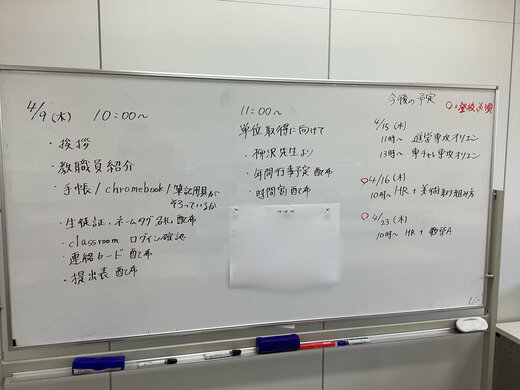 4/9 (木) 10:00~
・挨拶
・教職員紹介
・手帳/chromebook/筆記用具が
そろっているか
・生徒証、ネームタグ名札 配布
・classroom ログイン確認
・連絡カード 配布
・提出表 配布
11:00~
単位取得に向けて
・柳沢先生より
・年間行事予定 配布
・時間割 配布
今後の予定
○=登校必須
4/15 (水)
11時~ 進学専攻オリエン
13時~ 専チャレ専攻オリエン
○4/16 (木)
10時~ HR + 美術取り組み方
○4/23 (木)
10時~ HR + 数学A